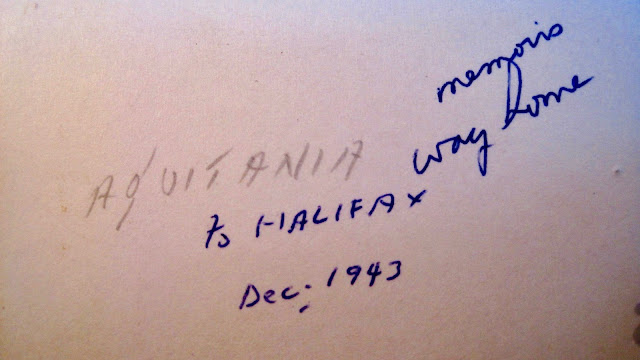 memoirs
way home
AQUITANIA
to HALIFAX
Dec. 1943